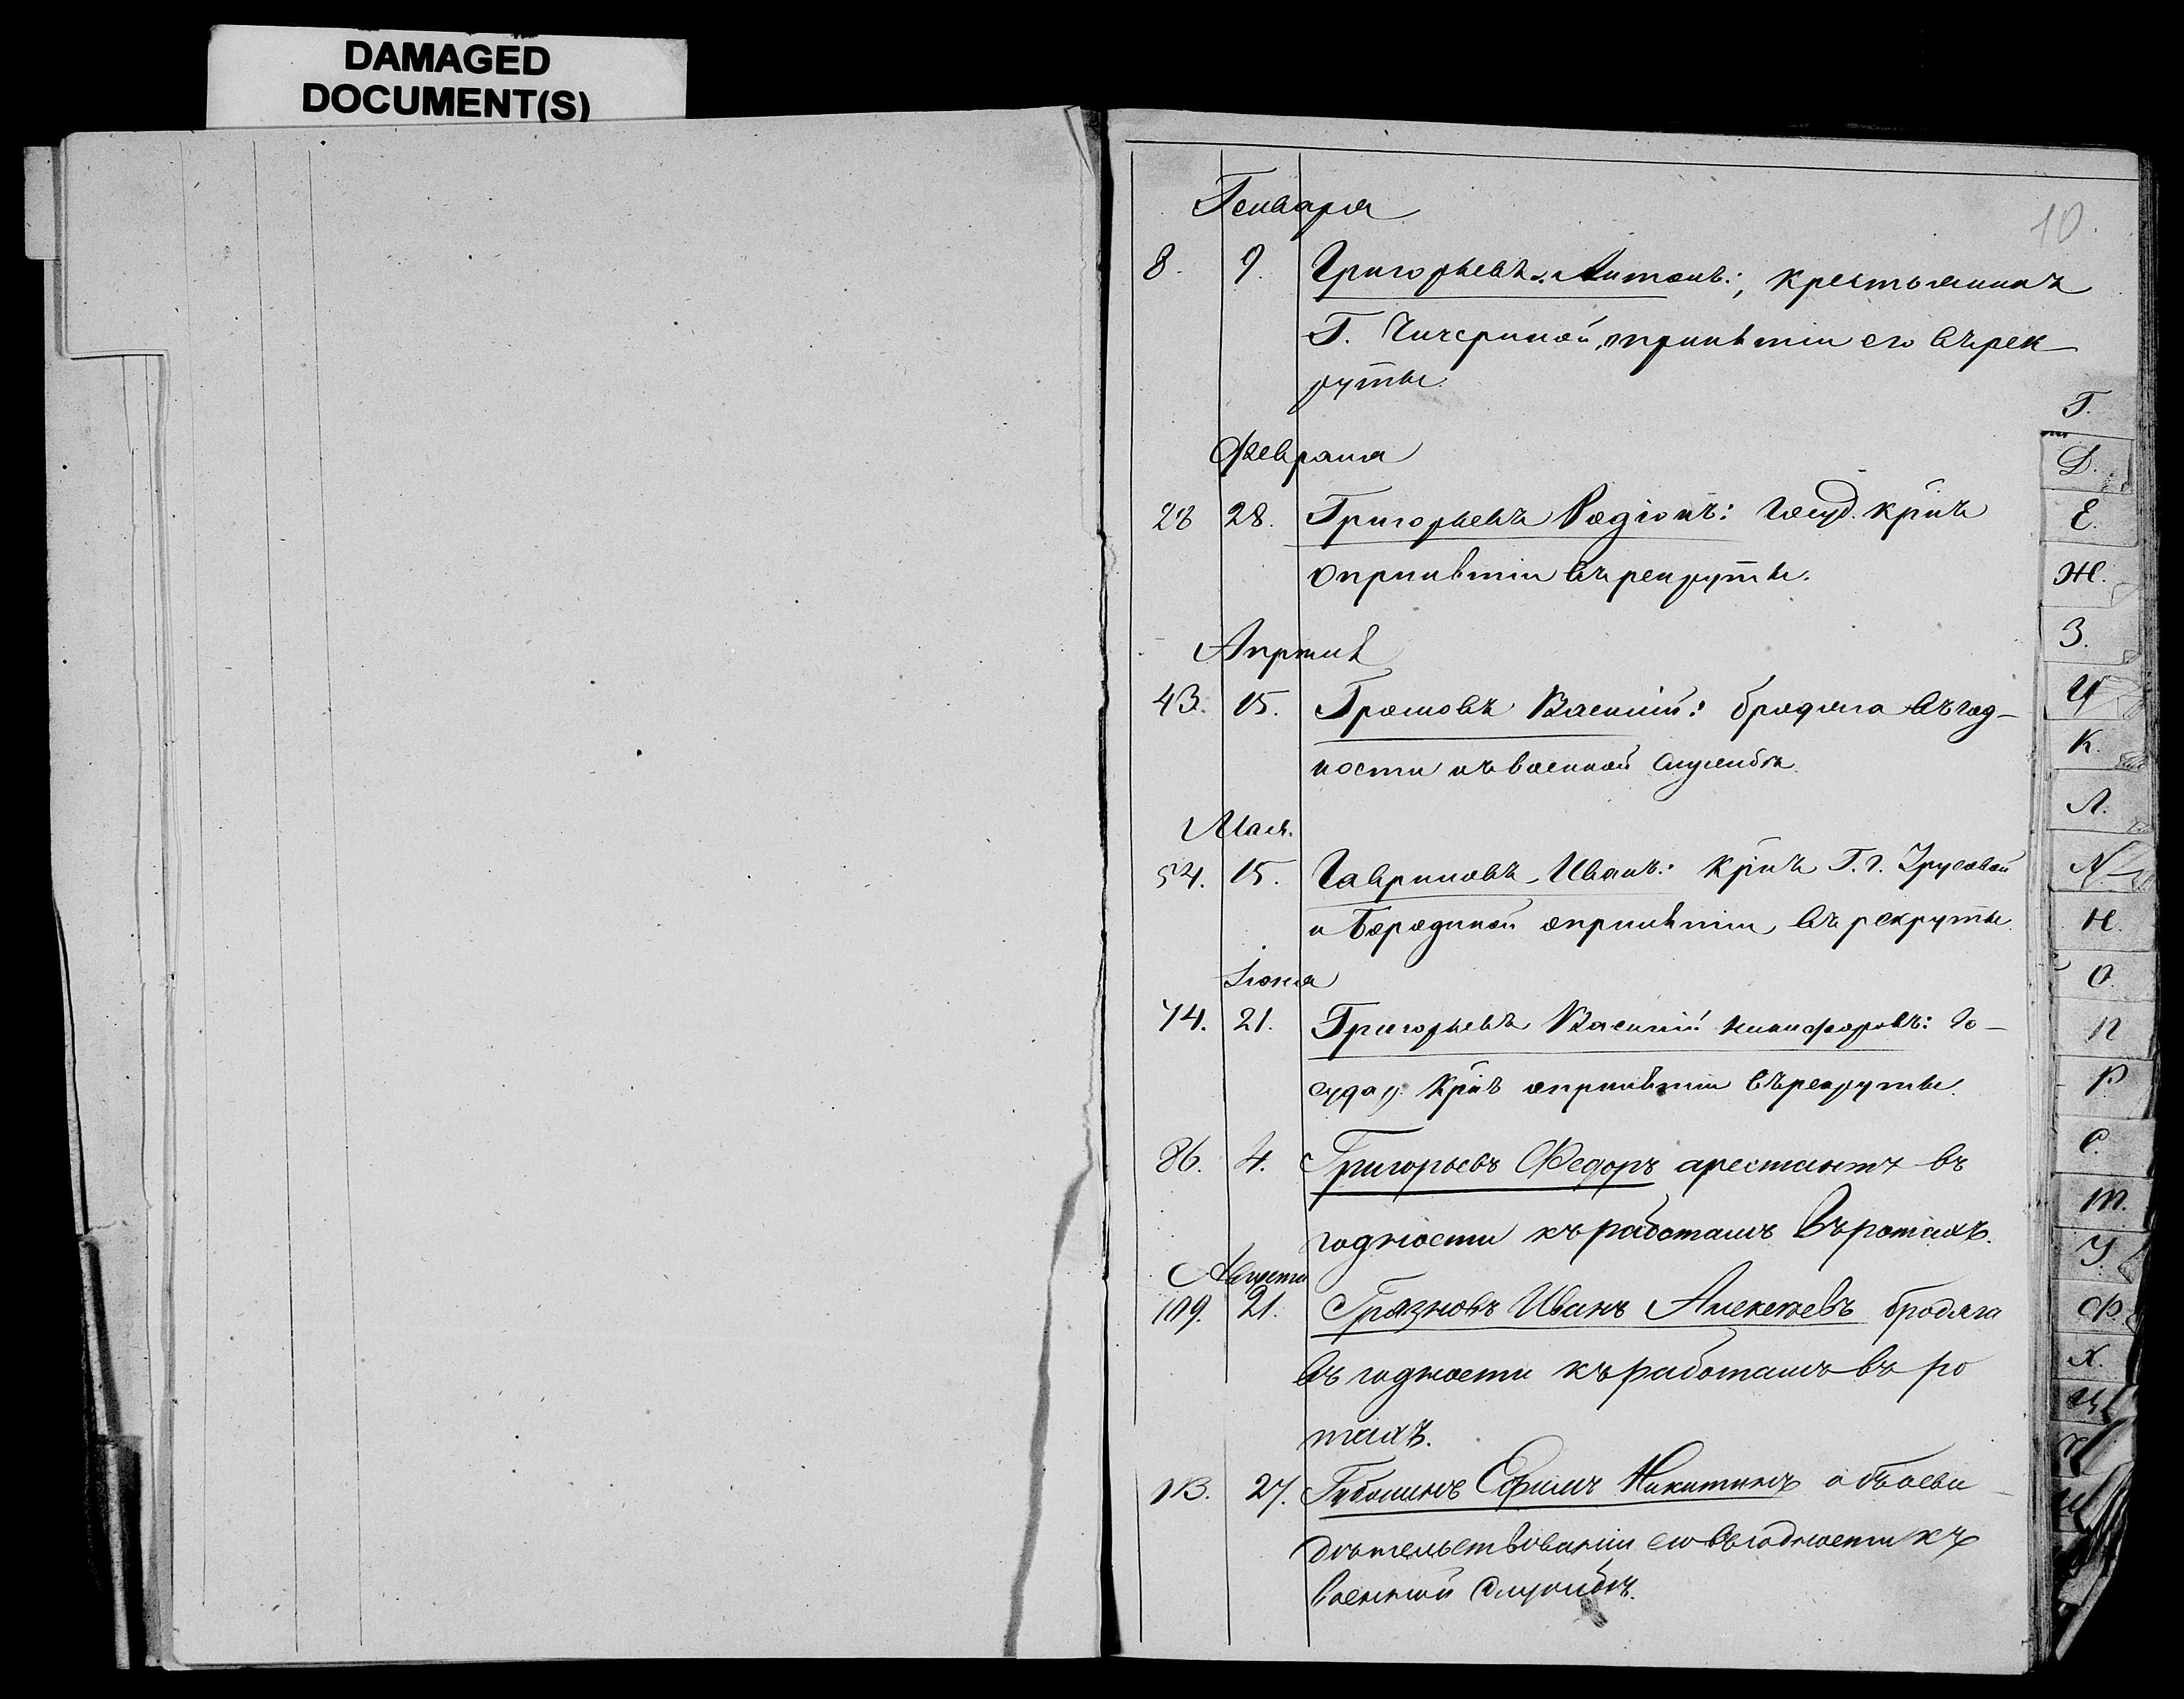 DAMAGED
DOCUMENT(S)
10.
Генваря
8. 9. Григорьевъ Антонъ:, крестьянинъ
Г. Чичериной, опринятіи его въ рек
руты.
Февраля
28 28. Григорьевъ Родіонъ: госуд. крнъ
опринятіи въ рекруты.
Апрѣля
43. 15. Громовъ Василій: бродяга въ год-
ности къ военной службѣ.
Мая.
54. 15. Гавриловъ Иванъ: крнъ Г. г.
и Бородиной опринятіи въ рекруты.
Іюня
74. 21. Григорьевъ Василій Никифоровъ: Го-
судар. Крнъ опринятіи въ рекруты.
86. 4. Григорьевъ Федоръ арестантъ въ
годности къ работамъ въ ротахъ.
Августа
109. 21. Грязновъ Иванъ Алексѣевъ бродяга
въ годности къ работамъ въ ро
тахъ.
113. 27. Ефимъ Никитинъ объ осви
дѣтельствованіи его въ годности къ
военной службѣ.
Г.
Д.
Е.
Ж.
З.
И
К.
Л.
М
Н.
О.
П
Р
С.
Т.
У.
Ф.
Х.
Ц
Ч